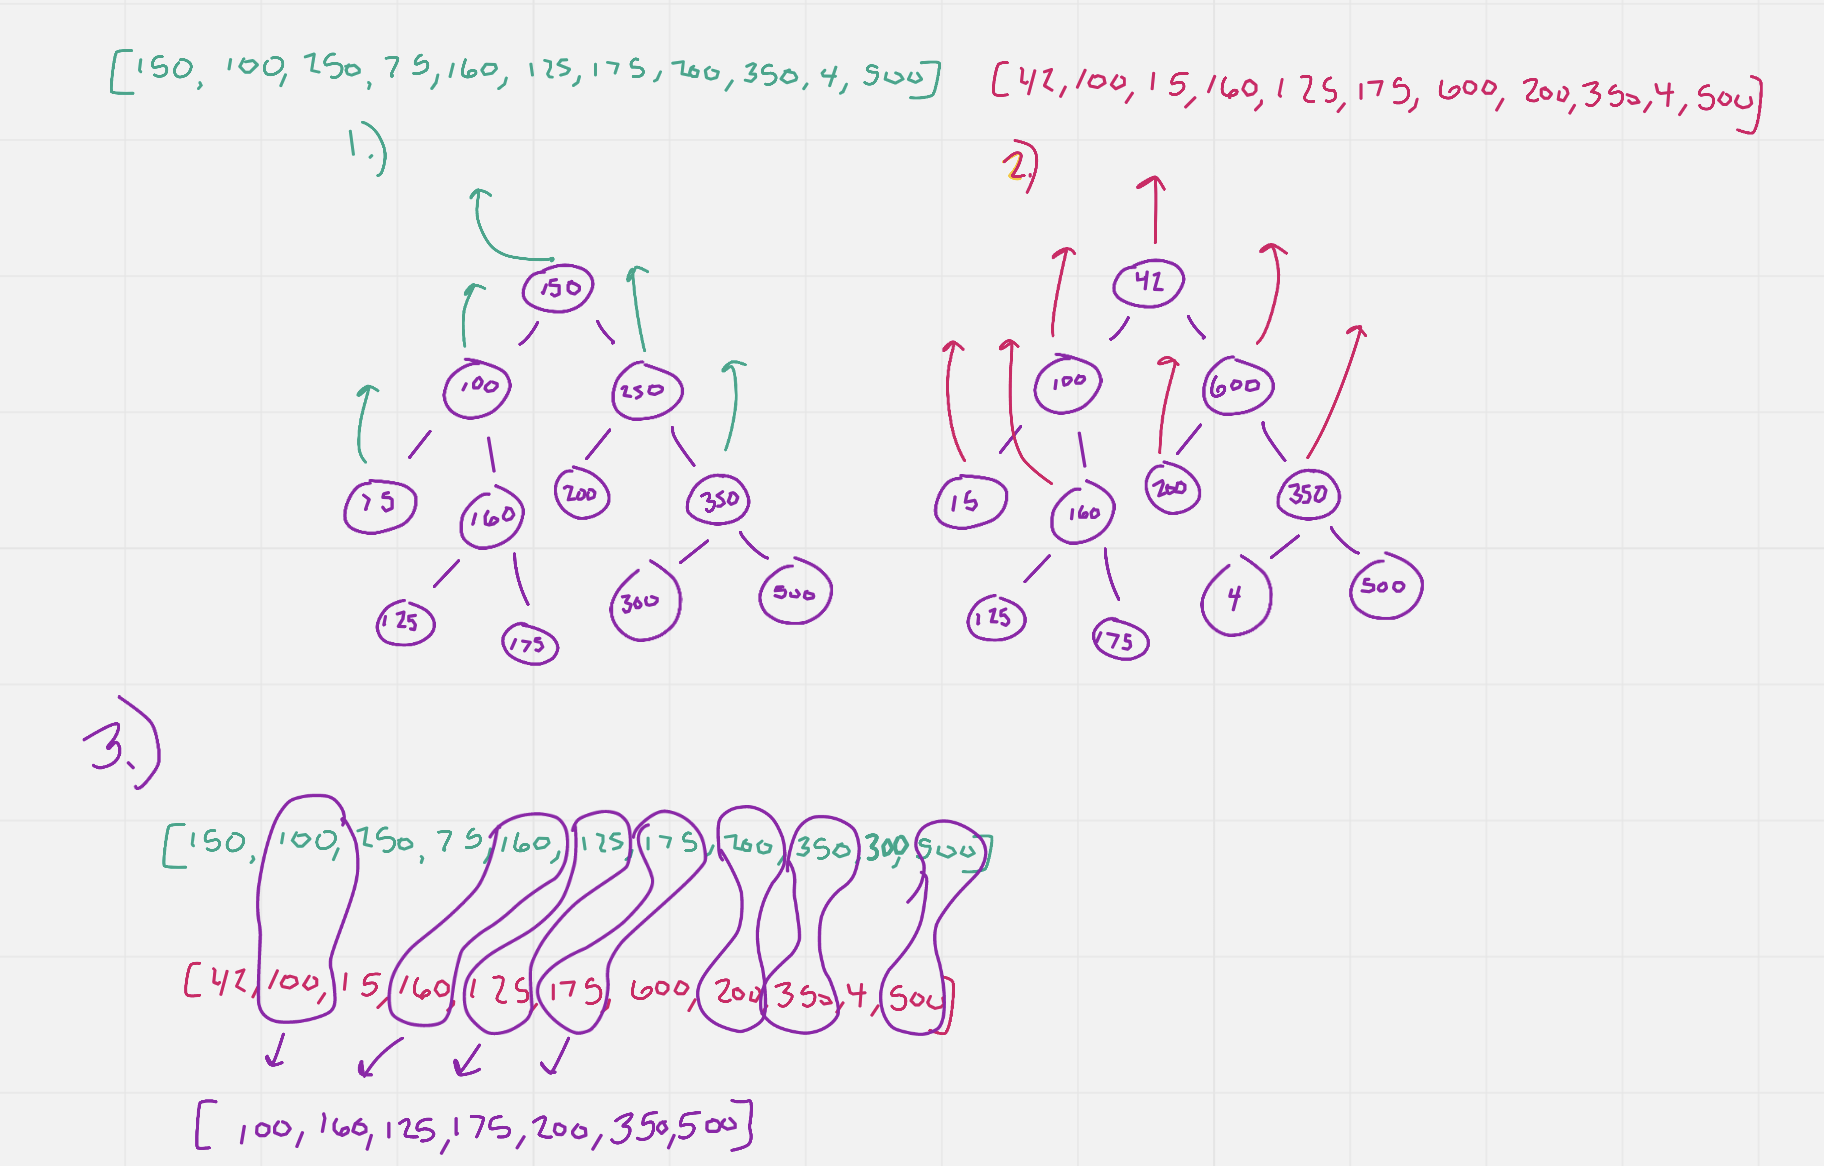 [150, 100, 250, 75, 160, 125, 175, 200, 350, 4, 500]
[42, 100, 15, 160, 125, 175, 600, 200, 350, 4, 500]
1.)
2.)
150
42
100
250
100
600
75
160
200
350
15
160
200
350
125
175
300
500
125
175
4
500
3.)
[150, 100, 250, 75, 160, 125, 175, 200, 350, 300, 500]
[42, 100, 15, 160, 125, 175, 600, 200, 350, 4, 500]
[100, 160, 125, 175, 200, 350, 500]